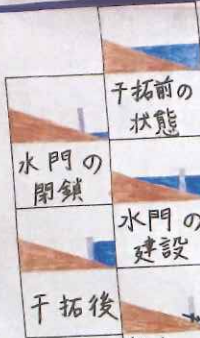 干拓前の
状態
水門の
閉鎖
水門の
建設
干拓後